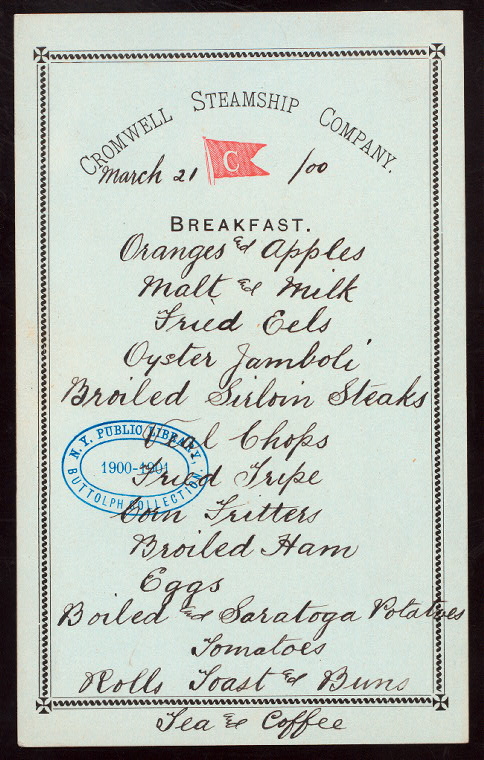 CROMWELL STEAMSHIP COMPANY.
March 21 C /00
BREAKFAST.
Oranges & Apples
Malt & Milk
Fried Eels
Oyster Jamboli
Broiled Sirloin Steaks
Veal Chops
Fried Tripe
Corn Fritters
Broiled Ham
Eggs
Boiled & Saratoga Potatoes
Tomatoes
Rolls Toast & Buns
Tea & Coffee
N. Y. PUBLIC LIBRARY
1900-1901
BUTTOLPH COLLECTION